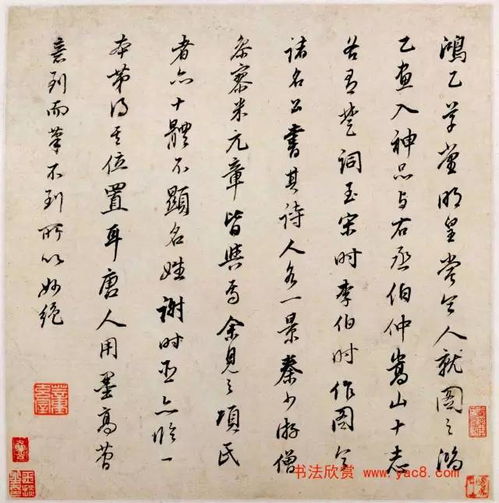 鴻乙草堂明皇嘗令人就圖之鴻
乙畫入神品与右丞伯仲嵩山十志
各有楚詞至宋時李伯时作圖令
諸名公書其詩人各一景秦少游僧
參寥米元章皆與焉余見之項氏
者亦十體不顯名姓謝时臣亦臨一
本第得其位置耳唐人用墨高簡
意到而筆不到所以妙絕
书法欣赏 www.yac8.com